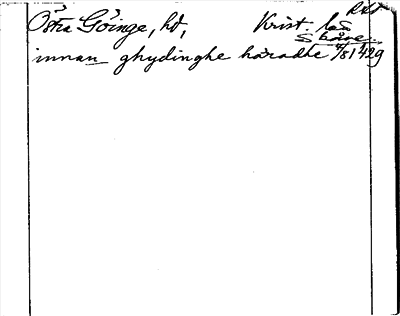 Östra Göinge, hd, Krist. läs
Skåne.
innan ghydinghe häradhe 4/8 1429